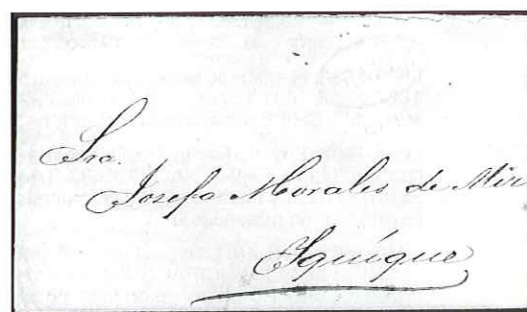 Sra.
Josefa Morales de Mir
Iquique